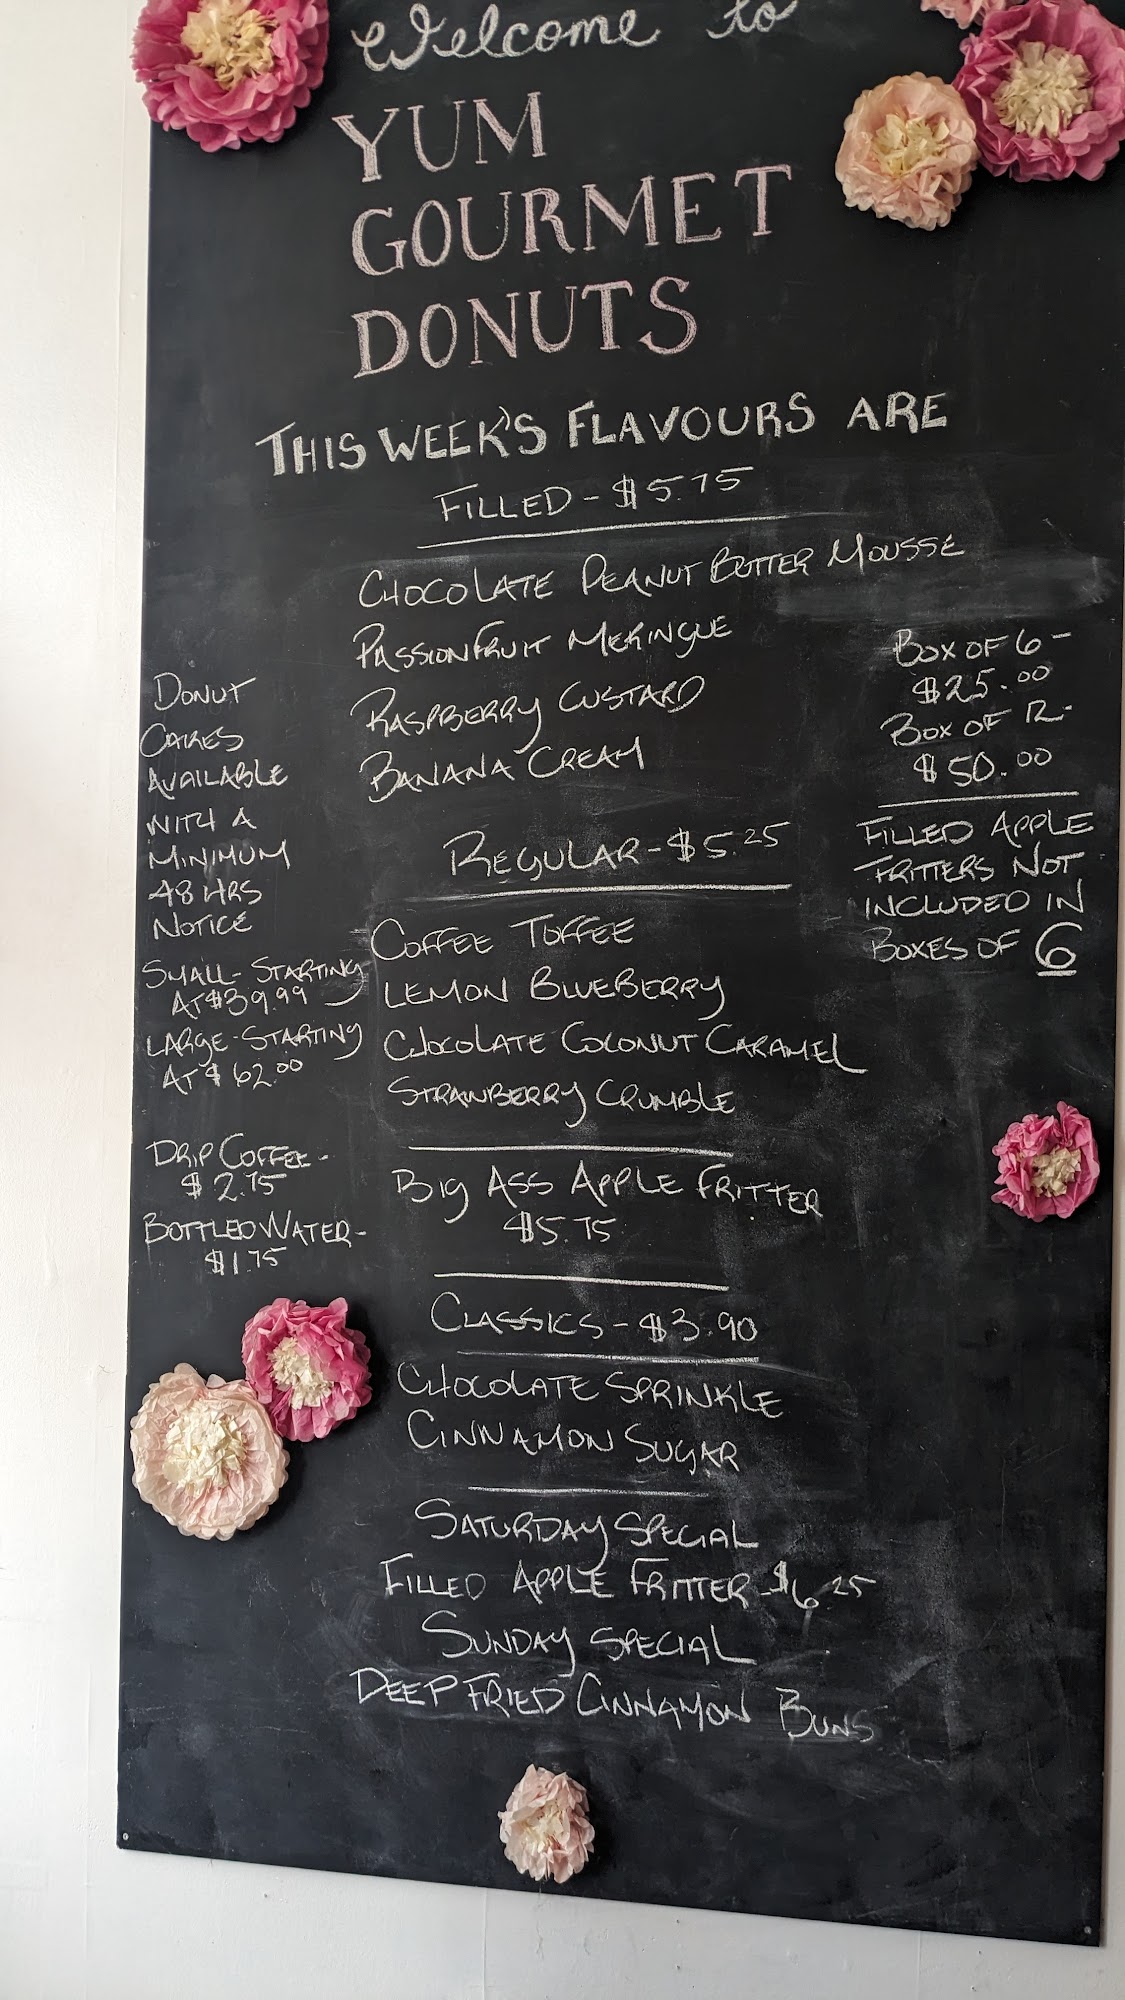 Welcome to
YUM
GOURMET
DONUTS
THIS WEEK'S FLAVOURS ARE
FILLED - $5.75
CHOCOLATE PEANUT BUTTER MOUSSE
PASSIONFRUIT MERINGUE
RASPBERRY CUSTARD
BANANA CREAM
REGULAR - $5.25
COFFEE TOFFEE
LEMON BLUEBERRY
CHOCOLATE COCONUT CARAMEL
STRAWBERRY CRUMBLE
BIG ASS APPLE FRITTER
$5.75
CLASSICS - $3.90
CHOCOLATE SPRINKLE
CINNAMON SUGAR
SATURDAY SPECIAL
FILLED APPLE FRITTER - $6.25
SUNDAY SPECIAL
DEEP FRIED CINNAMON BUNS
DONUT
CAKES
AVAILABLE
WITH A
MINIMUM
48 HRS
NOTICE
SMALL - STARTING
AT $39.99
LARGE - STARTING
AT $62.00
DRIP COFFEE -
$2.75
BOTTLED WATER -
$1.75
BOX OF 6 -
$25.00
BOX OF 12 -
$50.00
FILLED APPLE
FRITTERS NOT
INCLUDED IN
BOXES OF 6